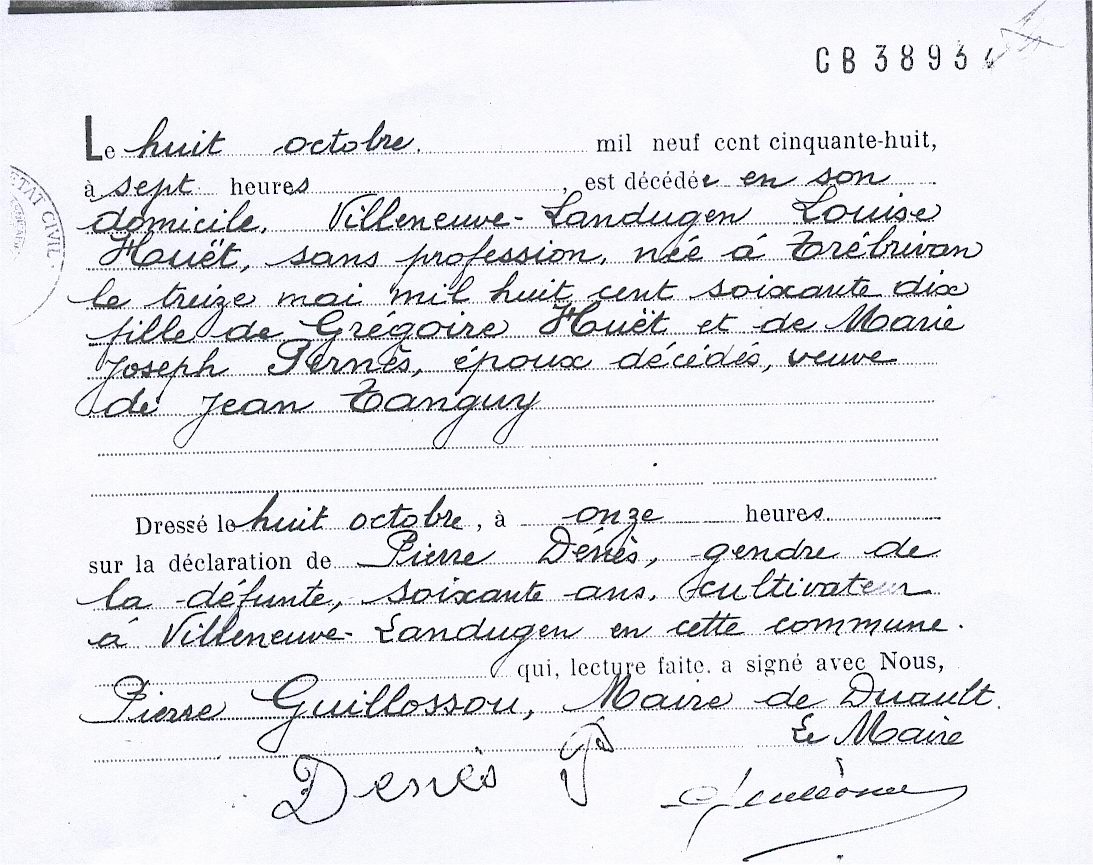 CB 3893
Le huit octobre mil neuf cent cinquante-huit,
à sept heures, est décédée en son
domicile, Villeneuve-Landugen Louise
Huët, sans profession, née à Trébrivan
le treize mai mil huit cent soixante dix
fille de Grégoire Huët et de Marie
Joseph Pernès, époux décédés, veuve
de Jean Tanguy
ETAT CIVIL
Dressé le huit octobre, à onze heures
sur la déclaration de Pierre Dénès, gendre de
la défunte, soixante ans, cultivateur
à Villeneuve-Landugen en cette commune.
qui, lecture faite, a signé avec Nous,
Pierre Guillossou, Maire de Duault.
Le Maire
Denès